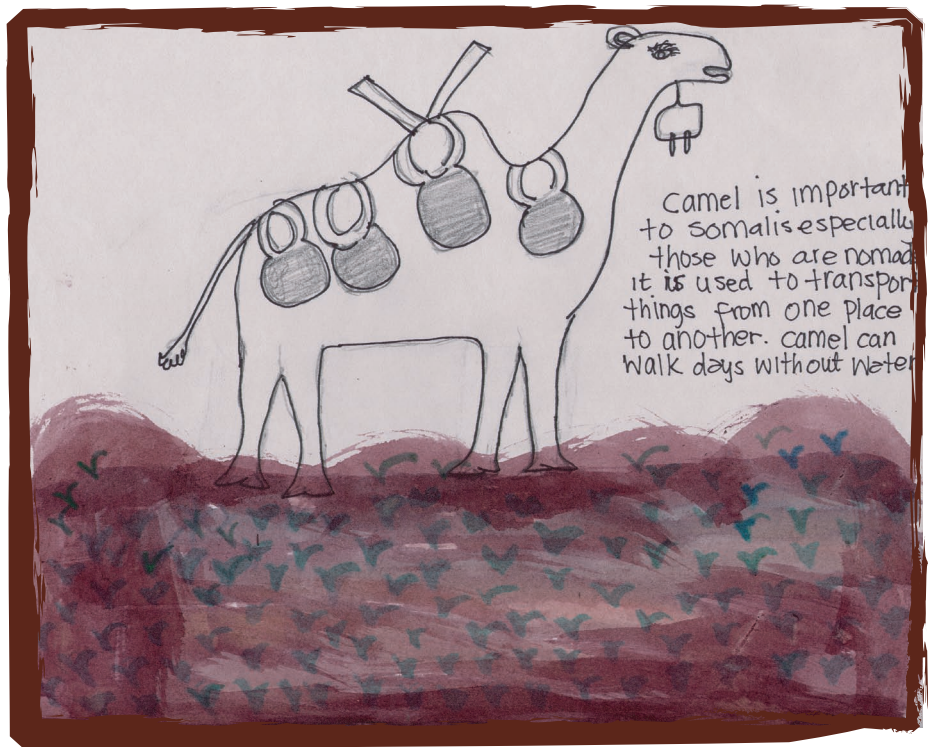 Camel is important
to somalis especially
those who are nomad
it is used to transport
things from one place
to another. camel can
walk days without water